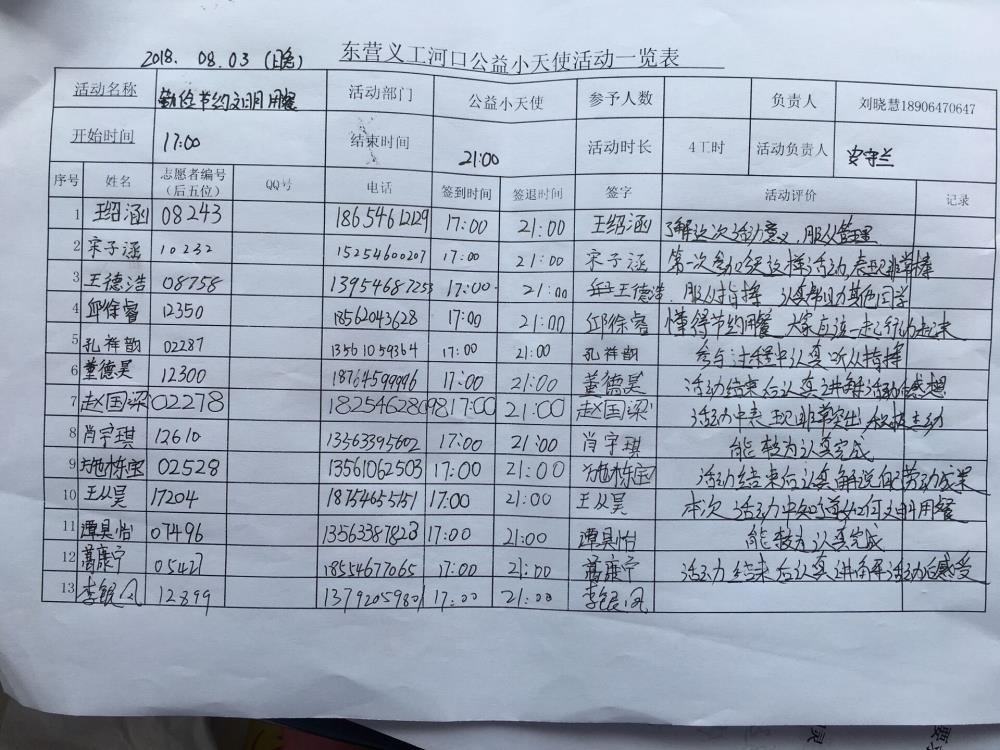 2018. 08. 03 东营义工河口公益小天使活动一览表
活动名称 勤俭节约文明用餐 活动部门 公益小天使 参予人数 负责人 刘晓慧18906470647
开始时间 17:00 结束时间 21:00 活动时长 4工时 活动负责人 安守兰
序号 姓名 志愿者编号（后五位） QQ号 电话 签到时间 签退时间 签字 活动评价 记录
1 王绍涵 08243 18654612129 17:00 21:00 王绍涵 了解这次活动意义，服从管理
2 宋子涵 10232 15254600207 17:00 21:00 宋子涵 第一次参加这样活动表现非常棒
3 王德浩 08758 13954687253 17:00 21:00 王德浩 服从指挥 认真帮助其他同学
4 邱徐睿 12350 18562043628 17:00 21:00 邱徐睿 懂得节约用餐 大家应该一起行动起来
5 孔祥韵 02287 13561059364 17:00 21:00 孔祥韵 参与过程中认真听从指挥
6 董德昊 12300 18764599946 17:00 21:00 董德昊 活动结束后认真讲解活动感想
7 赵国梁 02278 18254628098 17:00 21:00 赵国梁 活动中表现非常突出 积极主动
8 肖宇琪 12610 13563395602 17:00 21:00 肖宇琪 能较为认真完成
9 栋宝 02528 13561062503 17:00 21:00 栋宝 活动结束后认真解说自己劳动成果
10 王从昊 17204 18754655151 17:00 21:00 王从昊 本次活动中知道如何文明用餐
11 谭具怡 07496 13563387823 17:00 21:00 谭具怡 能较为认真完成
12 蒿康宁 05427 18554677065 17:00 21:00 蒿康宁 活动结束后认真讲解活动后感受
13 李银凤 12899 13792059801 17:00 21:00 李银凤